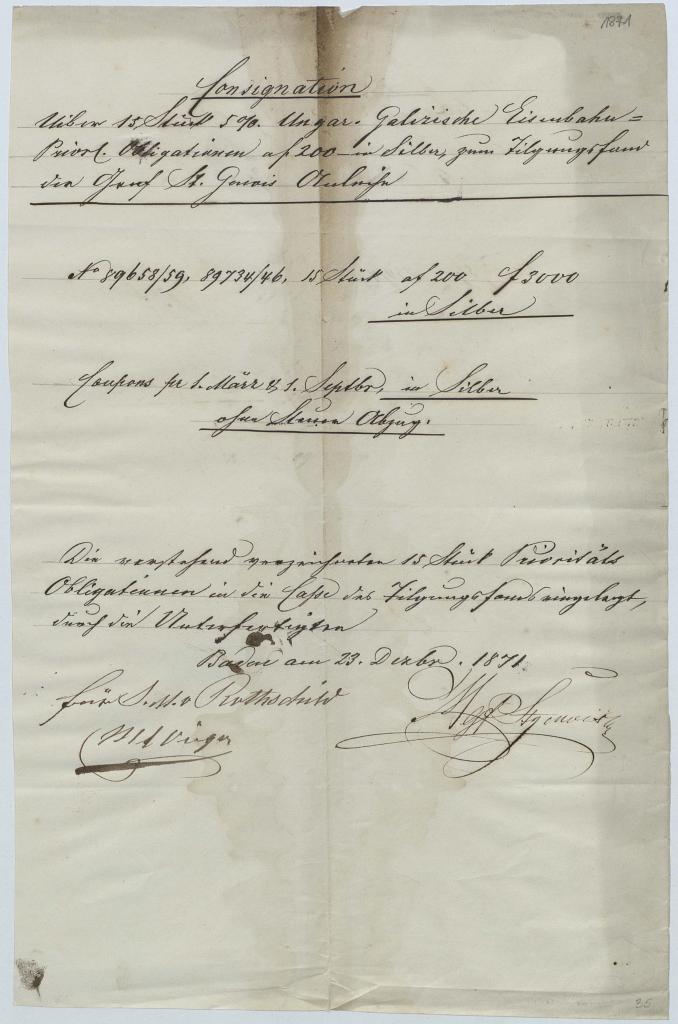 1871
Consignation
Ueber 15 Stück 5%. Ungar. Galizische Eisenbahn=
Priorl. Obligationen af 200 in Silber, zum Tilgungsfond
der Graf St. Genois Anleihe
No 89658/59, 89734/46, 15 Stück af 200 f 3000
in Silber
Coupons pr 1. März & 1. Septbr, in Silber
ohne Steuer Abzug.
Die vorstehend verzeichneten 15 Stück Prioritäts
Obligationen in die Casse des Tilgungsfonds eingelegt,
durch die Unterfertigten
am 23. Dezbr. 1871
für S. M. v Rothschild
35